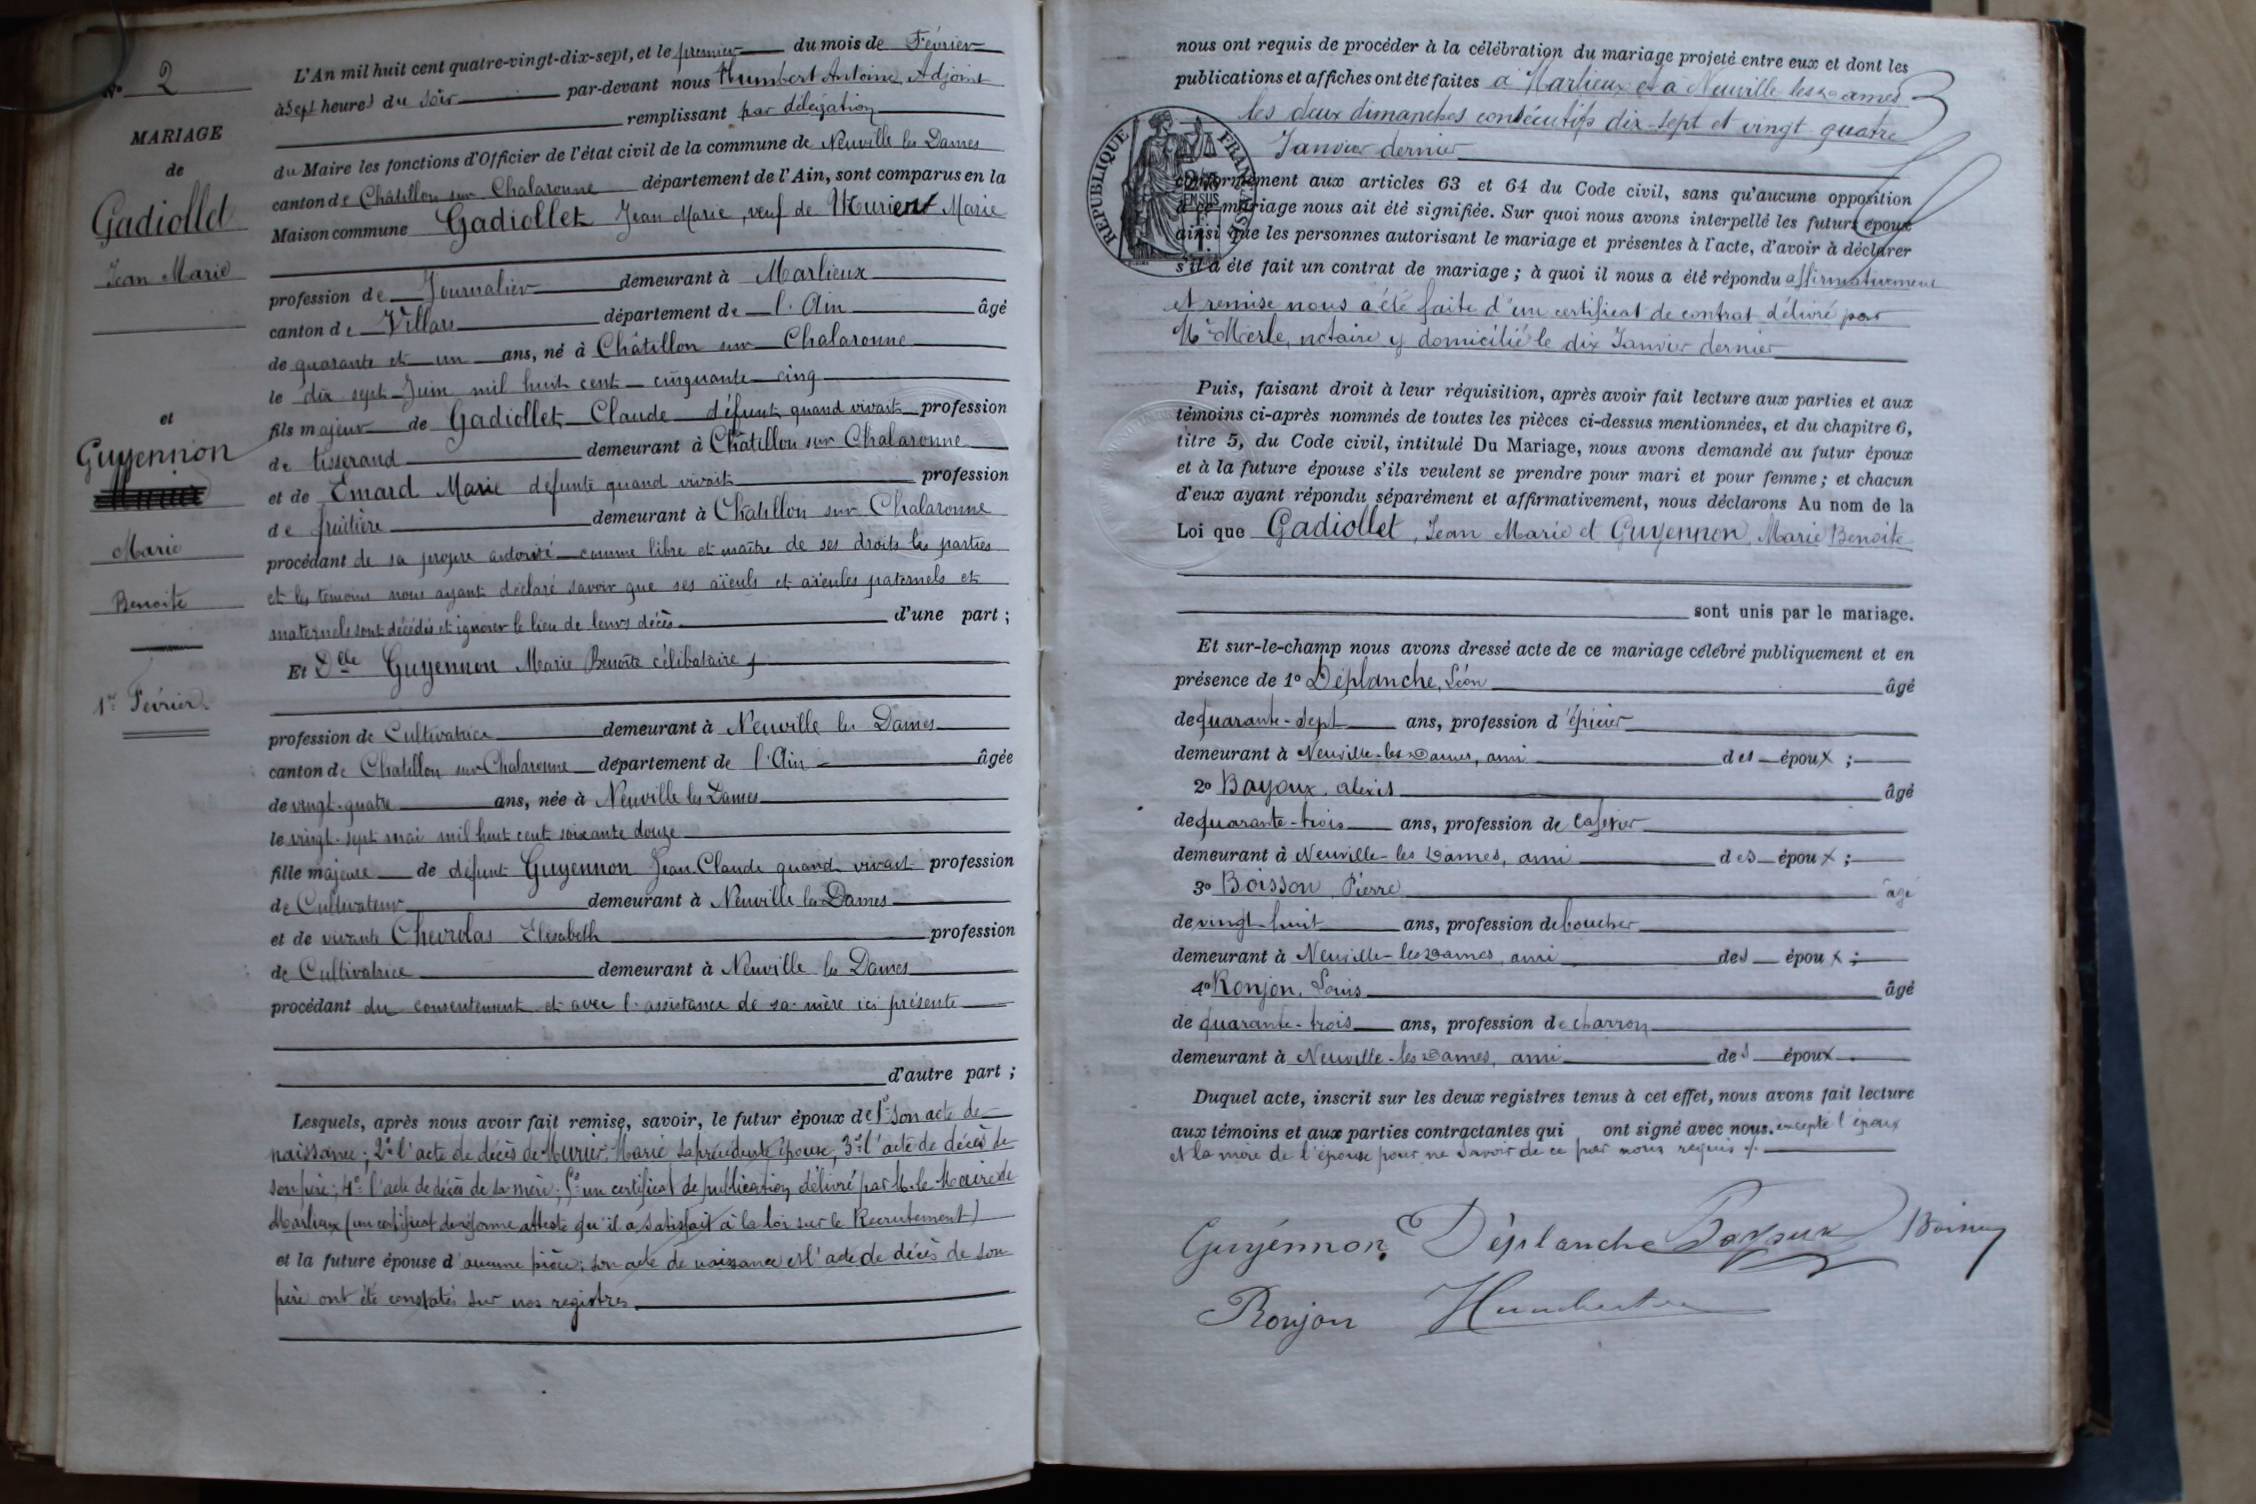 N° 2
MARIAGE
de
Gadiollet
Jean Marie
et
Guyennon
Marie
Benoite
1er Février
L'An mil huit cent quatre-vingt-dix-sept, et le premier du mois de Février
à Sept heures du soir par-devant nous Humbert Antoine, Adjoint
remplissant par délégation
du Maire les fonctions d'Officier de l'état civil de la commune de Neuville les Dames
canton de Châtillon sur Chalaronne département de l'Ain, sont comparus en la
Maison commune Gadiollet Jean Marie, veuf de Marie
profession de Journalier demeurant à Marlieux
canton de Villars département de l'Ain âgé
de quarante et un ans, né à Châtillon sur Chalaronne
le dix sept Juin mil huit cent cinquante cinq
fils majeur de Gadiollet Claude défunt quand vivait profession
de tisserand demeurant à Châtillon sur Chalaronne
et de Emard Marie défunte quand vivait profession
de fruitière demeurant à Châtillon sur Chalaronne
procédant de sa propre autorité comme libre et maître de ses droits les parties
et les témoins nous ayant déclaré savoir que ses aïeuls et aïeules paternels et
maternels sont décédés et ignorer le lieu de leurs décès d'une part ;
Et Delle Guyennon Marie Benoite célibataire
profession de Cultivatrice demeurant à Neuville les Dames
canton de Chatillon sur Chalaronne département de l'Ain âgée
de vingt-quatre ans, née à Neuville les Dames
le vingt-sept mai mil huit cent soixante douze
fille majeure de défunt Guyennon Jean Claude quand vivait profession
de Cultivateur demeurant à Neuville les Dames
et de vivante Chevrolas Elisabeth profession
de Cultivatrice demeurant à Neuville les Dames
procédant du consentement et avec l'assistance de sa mère ici présente
d'autre part ;
Lesquels, après nous avoir fait remise, savoir, le futur époux de 1° son acte de
naissance ; 2° l'acte de décès de Murier Marie sa précédente épouse, 3° l'acte de décès de
son père ; 4° l'acte de décès de sa mère ; 5° un certificat de publication délivré par M. le Maire de
Marlieux (un certificat de réforme atteste qu'il a satisfait à la loi sur le Recrutement)
et la future épouse d'aucune pièce ; son acte de naissance et l'acte de décès de son
père ont été constatés sur nos registres.
nous ont requis de procéder à la célébration du mariage projeté entre eux et dont les
publications et affiches ont été faites à Marlieux et à Neuville les Dames
les deux dimanches consécutifs dix-sept et vingt quatre
Janvier dernier
RÉPUBLIQUE FRANÇAISE
conformément aux articles 63 et 64 du Code civil, sans qu'aucune opposition
à ce mariage nous ait été signifiée. Sur quoi nous avons interpellé les futurs époux
ainsi que les personnes autorisant le mariage et présentes à l'acte, d'avoir à déclarer
s'il a été fait un contrat de mariage ; à quoi il nous a été répondu affirmativement
et remise nous a été faite d'un certificat de contrat délivré par
Me Merle, notaire y domicilié le dix Janvier dernier
Puis, faisant droit à leur réquisition, après avoir fait lecture aux parties et aux
témoins ci-après nommés de toutes les pièces ci-dessus mentionnées, et du chapitre 6,
titre 5, du Code civil, intitulé Du Mariage, nous avons demandé au futur époux
et à la future épouse s'ils veulent se prendre pour mari et pour femme ; et chacun
d'eux ayant répondu séparément et affirmativement, nous déclarons Au nom de la
Loi que Gadiollet, Jean Marie et Guyennon, Marie Benoite
sont unis par le mariage.
Et sur-le-champ nous avons dressé acte de ce mariage célébré publiquement et en
présence de 1° Déplanche, Léon âgé
de quarante-sept ans, profession d'épicier
demeurant à Neuville-les-Dames, ami des époux ;
2° Bayoux, alexis âgé
de quarante-trois ans, profession de cafetier
demeurant à Neuville-les Dames, ami des époux ;
3° Boisson, Pierre âgé
de vingt-huit ans, profession de boucher
demeurant à Neuville-les Dames, ami des époux ;
4° Ronjon, Louis âgé
de quarante-trois ans, profession de charron
demeurant à Neuville-les-Dames, ami des époux.
Duquel acte, inscrit sur les deux registres tenus à cet effet, nous avons fait lecture
aux témoins et aux parties contractantes qui ont signé avec nous. excepté l'époux
et la mère de l'épouse pour ne savoir de ce par nous requis
Guyénnon Déplanche Bayoux Boisson
Ronjon Humbert